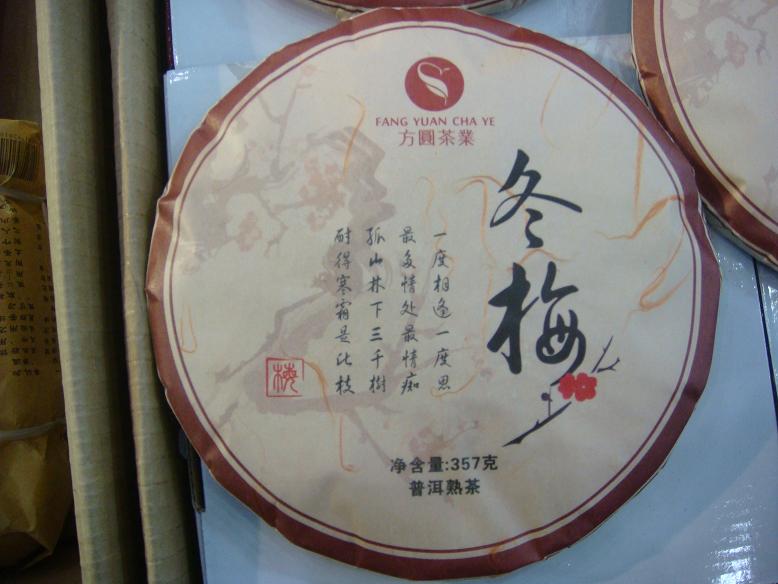 FANG YUAN CHA YE
方圓茶業
冬梅
一度相逢一度思
最多情处最情痴
孤山林下三千樹
耐得寒霜是此枝
梅
净含量:357克
普洱熟茶